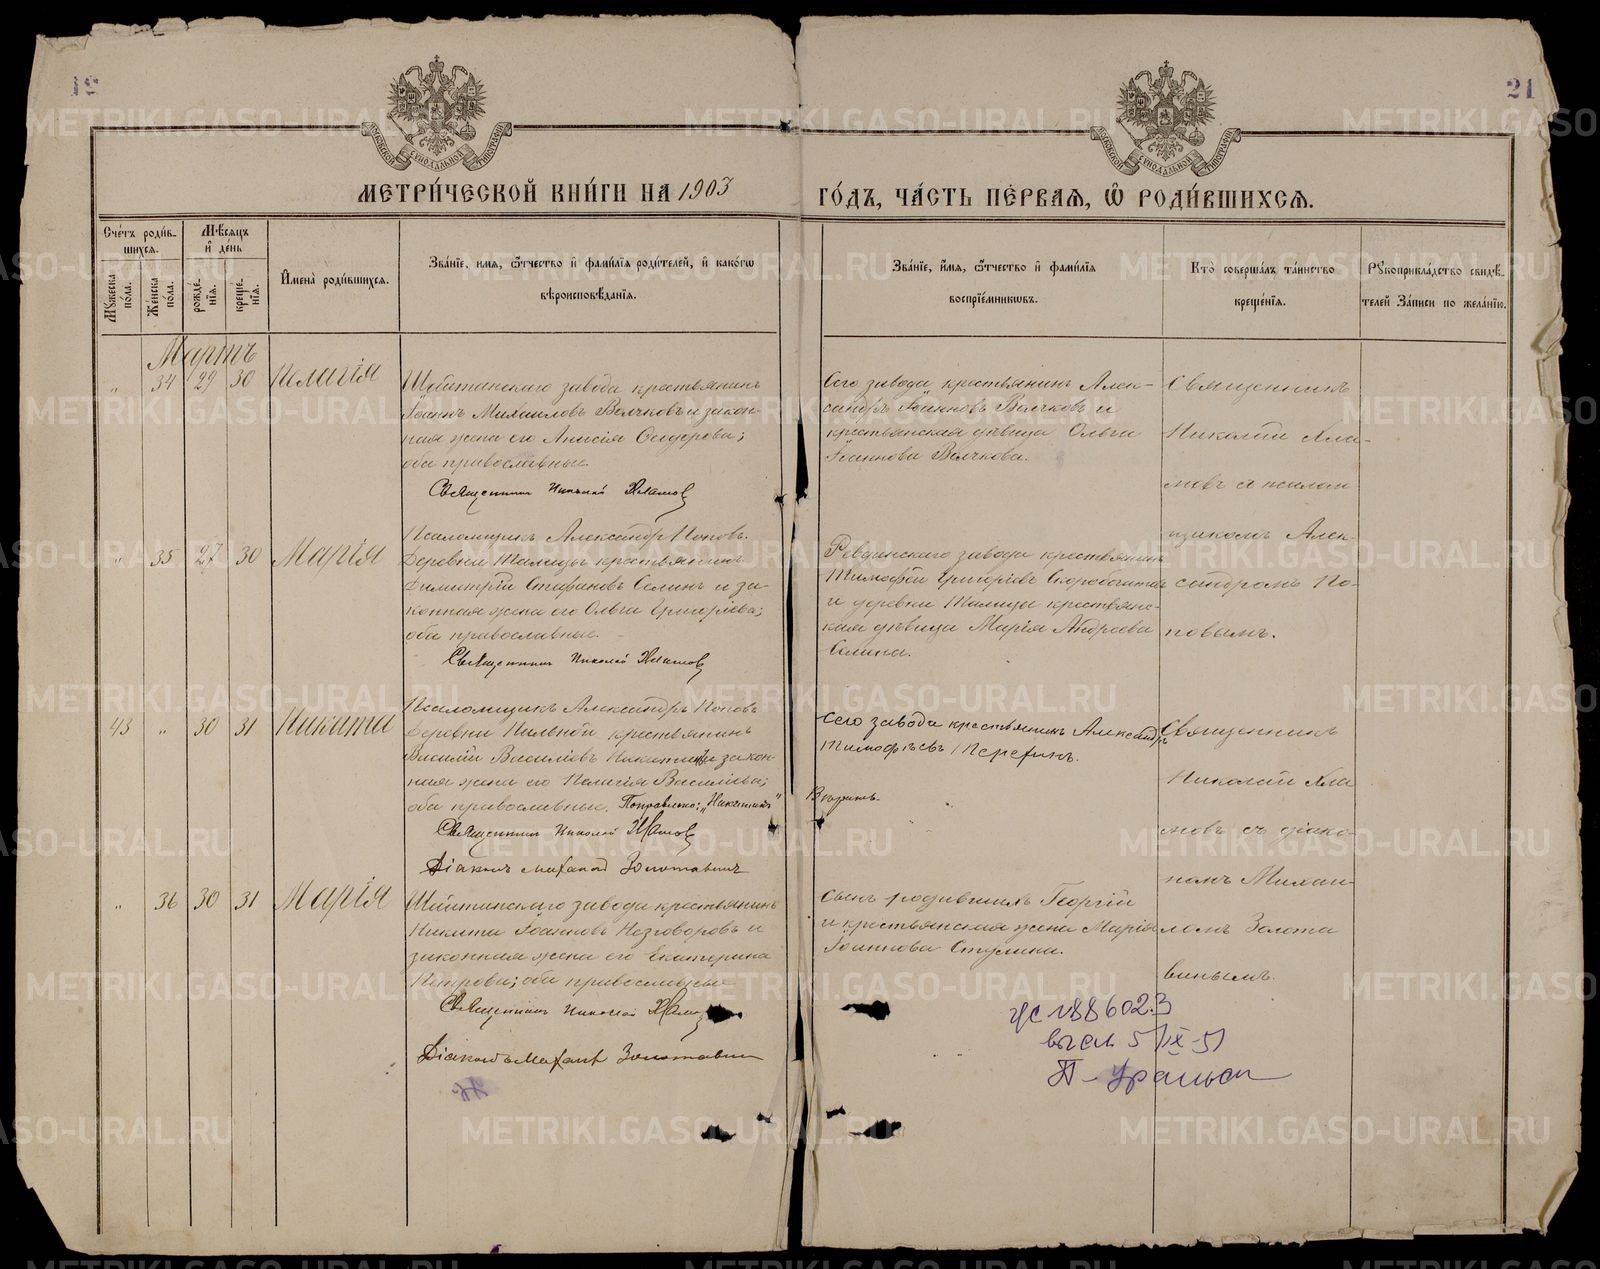 21
МЕТРИ́ЧЕСКОЙ КНИ́ГИ НА 1903 ГО́ДЪ, ЧА́СТЬ ПЕ́РВАЯ, Ѡ҆ РОДИ́ВШИХСЯ.
Сче́тъ роди́в-
шихся.
Мꙋжеска по́ла.
Женска по́ла.
Мѣ́сяцъ и҆ де́нь
рожде́нїя.
креще́нїя.
И҆мена̀ роди́вшихся.
Зва́нїе, имя, ѿтчество и҆ фами́лїя роди́телей, и҆ како́гѡ
вѣроисповѣ́данїя.
Зва́нїе, и҆́мя, ѿтчество и҆ фами́лїя
воспрїе́мникѡвъ.
Кто̀ соверша́лъ та́инство
креще́нїя.
Рꙋкоприкла́дство свидѣ́-
телей За́писи по жела́нїю.
Мартъ
„ 34 29 30 Пелагія
Шайтанскаго завода крестьянинъ
Іоаннъ Михаиловъ Волчковъ и закон-
ная жена его Анисія Сидорова;
оба православные.
Священникъ Николай Хламов
Псаломщикъ Александръ Поповъ.
Сего завода крестьянинъ Алек-
сандръ Іоанновъ Волчковъ и
крестьянская дѣвица Ольга
Іоаннова Волчкова.
Священникъ
Николай Хла-
мовъ съ псалом-
щикомъ Алек-
сандромъ По-
повымъ.
„ 35 27 30 Марія
Деревни Талицы крестьянинъ
Димитрій Стафановъ Селинъ и за-
конная жена его Ольга Григоріева;
оба православные.
Священникъ Николай Хламов
Псаломщикъ Александръ Поповъ
Ревдинскаго завода крестьянинъ
Тимофей Григоріевъ Скоробогатов
и деревни Талицы крестьянс-
кая дѣвица Марія Андреева
Селина.
43 „ 30 31 Никита
Деревни Пильной крестьянинъ
Василій Василіевъ Никитинъ и закон-
ная жена его Пелагія Василіева;
оба православные. Поправлено: „Никитинъ"
Священникъ Николай Хламов
Діаконъ Михаилъ Золотавинъ
Сего завода крестьянинъ Александръ
Тимофѣевъ Перетинъ.
Вѣрить.
Священникъ
Николай Хла
мовъ съ діако-
номъ Михаи-
ломъ Золота
винымъ.
„ 36 30 31 Марія
Шайтанскаго завода крестьянинъ
Никита Іоанновъ Незговоровъ и
законная жена его Екатерина
Петрова; оба православные
Священникъ Николай Хламов
Діаконъ Михаилъ Золотавин
Сынъ родившихъ Георгій
и крестьянская жена Марія
Іоаннова Ступина.
ЦС 188602.3
высл 5/IX-51
П-Уральск
METRIKI.GASO-URAL.RU